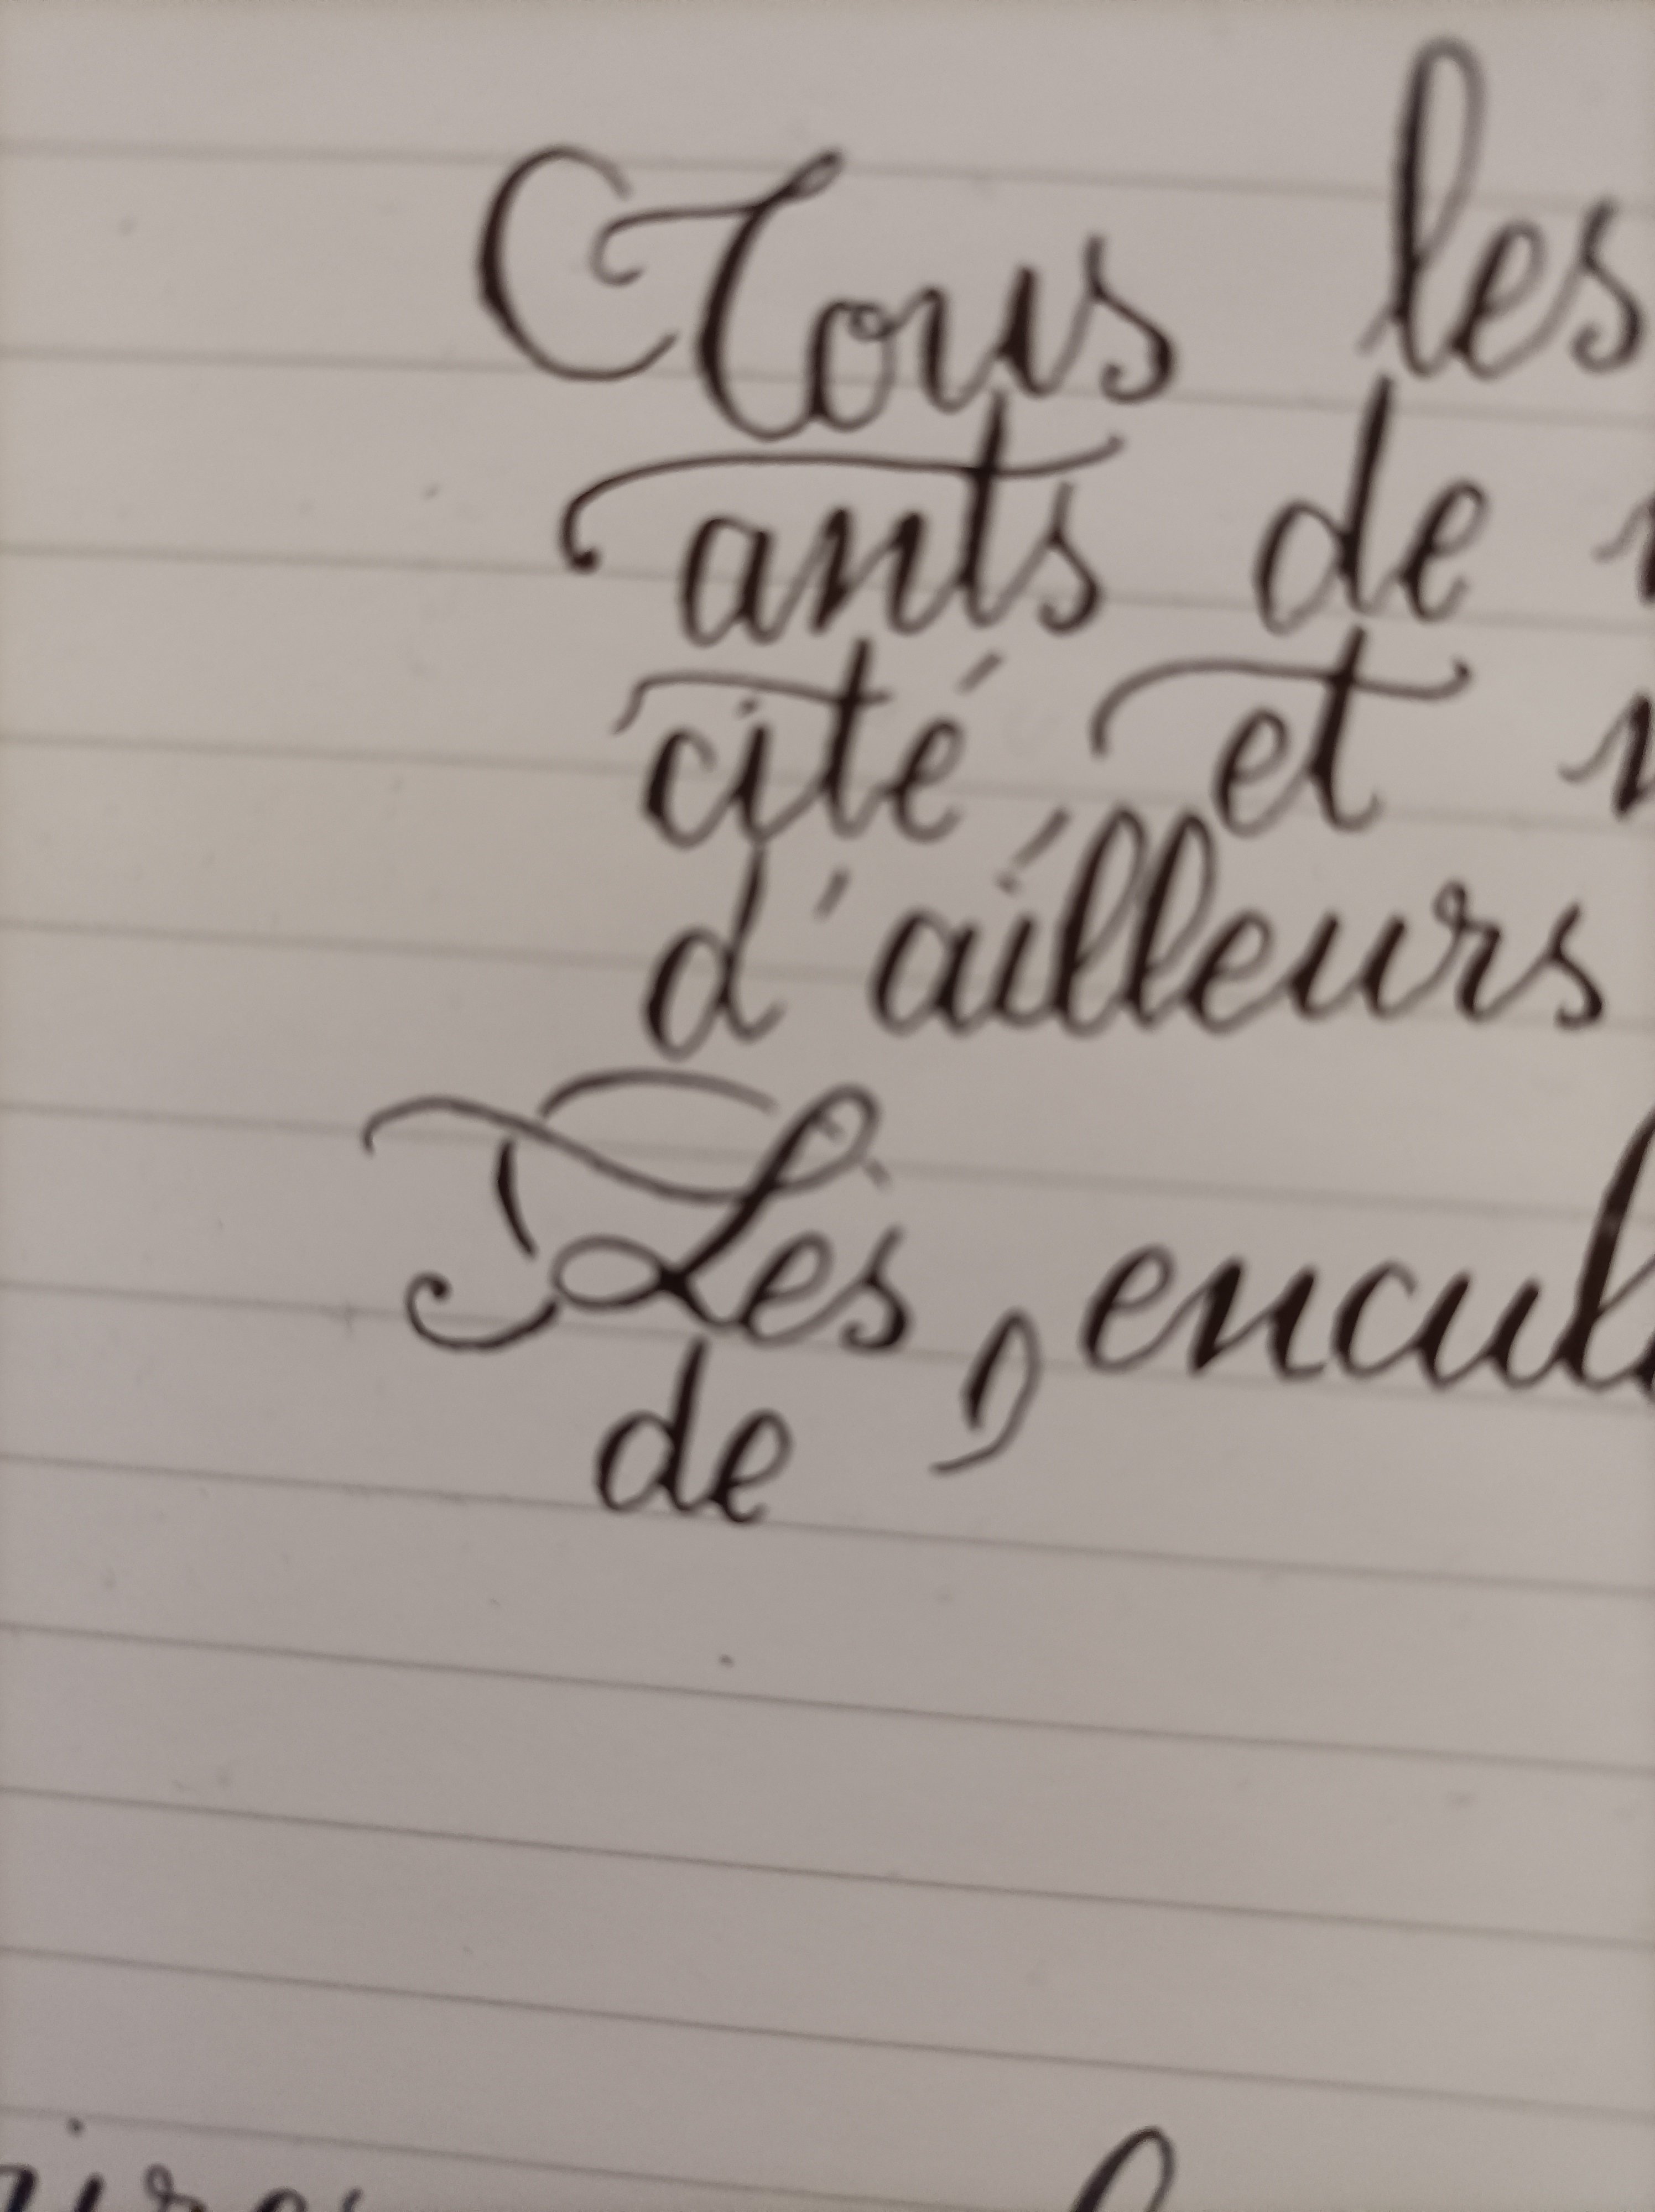 Tous les
ants de
cité et
d'ailleurs
Les encul
de